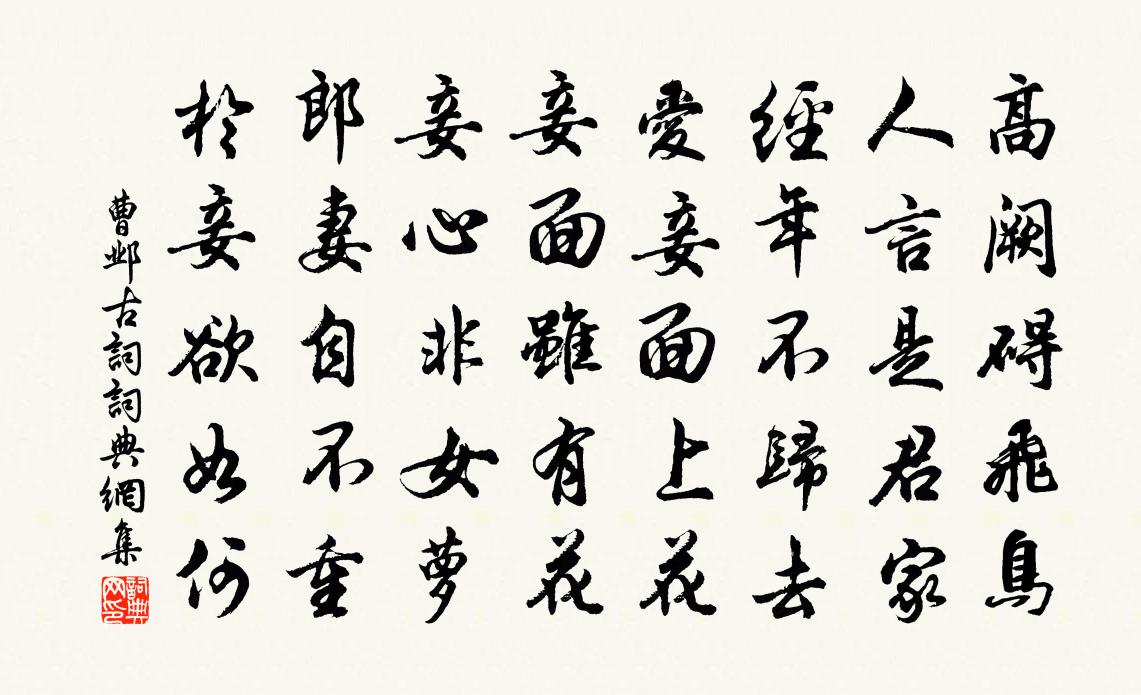 高闕碍飛鳥
人言是君家
經年不歸去
愛妾面上花
妾面雖有花
妾心非女萝
郎妻自不重
於妾欲如何
曹邺古詞詞典網集
詞典网印